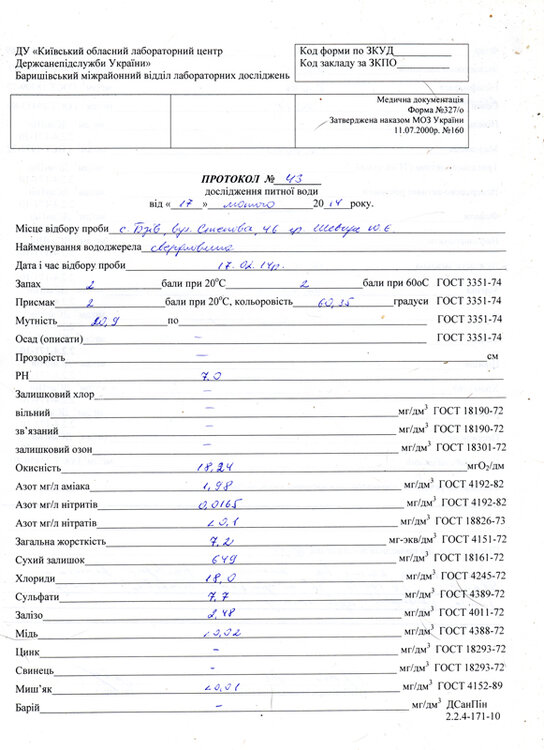 ДУ «Київський обласний лабораторний центр
Держсанепідслужби України»
Баришівський міжрайонний відділ лабораторних досліджень
Код форми по ЗКУД__________
Код закладу за ЗКПО_________
Медична документація
Форма №327/о
Затверджена наказом МОЗ України
11.07.2000р. №160
ПРОТОКОЛ № 43
дослідження питної води
від « 17 » лютого 2014 року.
Місце відбору проби с. Бзів, вул. Степова, 46 гр. Шевчук Ю.Є.
Найменування вододжерела свердловина
Дата і час відбору проби 17.02.14р.
Запах 2 бали при 20°С 2 бали при 60оС ГОСТ 3351-74
Присмак 2 бали при 20°С, кольоровість 60,35 градуси ГОСТ 3351-74
Мутність 20,9 по ГОСТ 3351-74
Осад (описати) – ГОСТ 3351-74
Прозорість – см
РН 7.0
Залишковий хлор –
вільний – мг/дм³ ГОСТ 18190-72
зв’язаний – мг/дм³ ГОСТ 18190-72
залишковий озон – мг/дм³ ГОСТ 18301-72
Окисність 18,24 мгО₂/дм
Азот мг/л аміака 1,98 мг/дм³ ГОСТ 4192-82
Азот мг/л нітритів 0,0165 мг/дм³ ГОСТ 4192-82
Азот мг/л нітратів <0,1 мг/дм³ ГОСТ 18826-73
Загальна жорсткість 7,2 мг-экв/дм³ ГОСТ 4151-72
Сухий залишок 649 мг/дм³ ГОСТ 18161-72
Хлориди 18,0 мг/дм³ ГОСТ 4245-72
Сульфати 7,7 мг/дм³ ГОСТ 4389-72
Залізо 2,48 мг/дм³ ГОСТ 4011-72
Мідь <0,02 мг/дм³ ГОСТ 4388-72
Цинк – мг/дм³ ГОСТ 18293-72
Свинець – мг/дм³ ГОСТ 18293-72
Миш’як <0,01 мг/дм³ ГОСТ 4152-89
Барій – мг/дм³ ДСанПін
2.2.4-171-10